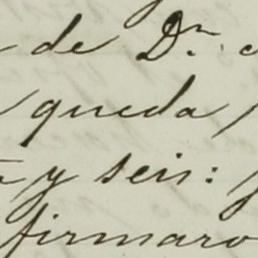 de Dn.
queda
y seis:
firmaro